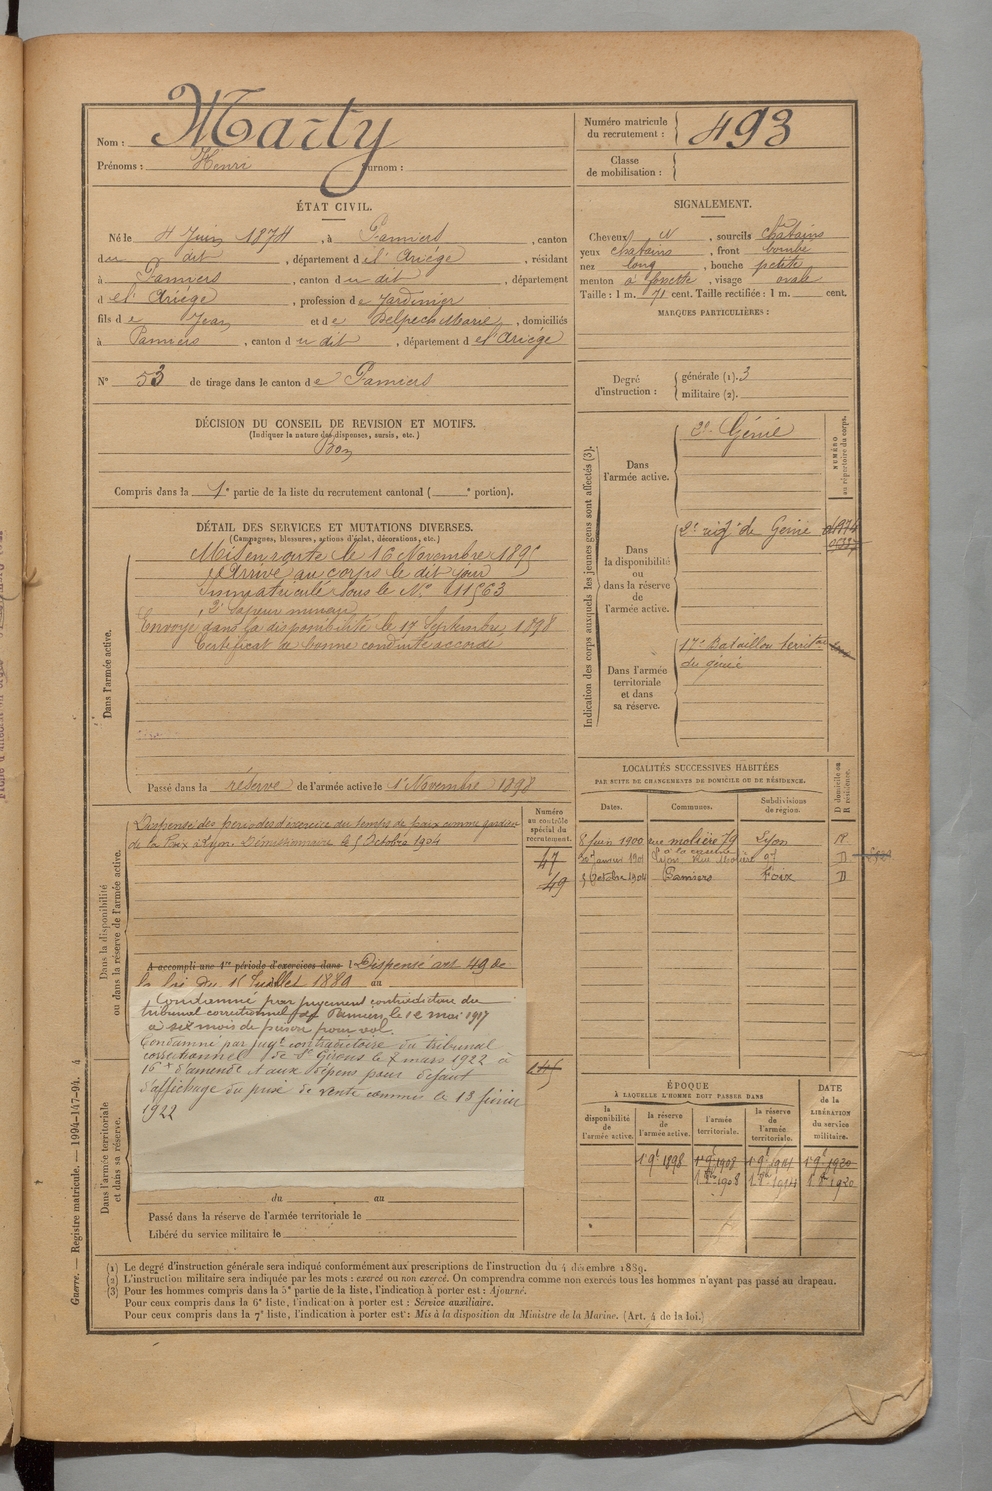 Nom : Marty
Prénoms : Henri Surnom :
Numéro matricule du recrutement : 493
Classe de mobilisation :
ÉTAT CIVIL.
Né le 4 Juin 1874, à Pamiers, canton
du dit, département de l'Ariége, résidant
à Pamiers, canton du dit, département
de l'Ariége, profession de Jardinier
fils de Jean et de Delpech Marie, domiciliés
à Pamiers, canton du dit, département de l'Ariége
N° 53 de tirage dans le canton de Pamiers
SIGNALEMENT.
Cheveux N, sourcils châtains
yeux châtains, front bombé
nez long, bouche petite
menton à fossette, visage ovale
Taille : 1 m. 71 cent. Taille rectifiée : 1 m. cent.
MARQUES PARTICULIÈRES :
Degré d'instruction : générale (1). 3
militaire (2).
DÉCISION DU CONSEIL DE REVISION ET MOTIFS.
(Indiquer la nature des dispenses, sursis, etc.)
Bon
Compris dans la 1e partie de la liste du recrutement cantonal ( e portion).
DÉTAIL DES SERVICES ET MUTATIONS DIVERSES.
(Campagnes, blessures, actions d'éclat, décorations, etc.)
Dans l'armée active.
Mis en route le 16 Novembre 1895
Arrivé au corps le dit jour
Immatriculé sous le N° 11563
2e Sapeur mineur
Envoyé dans la disponibilité le 17 Septembre 1898
Certificat de bonne conduite accordé
Passé dans la réserve de l'armée active le 1er Novembre 1898
Indication des corps auxquels les jeunes gens sont affectés (3).
NUMÉRO au répertoire du corps.
Dans l'armée active.
2e Génie
Dans la disponibilité ou dans la réserve de l'armée active.
2e rég.t de Génie
Dans l'armée territoriale et dans sa réserve.
17e Bataillon territ.al
du génie
LOCALITÉS SUCCESSIVES HABITÉES
PAR SUITE DE CHANGEMENTS DE DOMICILE OU DE RÉSIDENCE.
Dates. Communes. Subdivisions de région. D domicile ou R résidence.
8 Juin 1900 rue molière 79 Lyon R
janvier 1901 Lyon, Rue Molière 97 D
5 Octobre 1904 Pamiers Foix D
Dans la disponibilité ou dans la réserve de l'armée active.
Numéro au contrôle spécial du recrutement.
47
49
Dispensé des périodes d'exercice du temps de paix comme gardien
de la Paix à Lyon. Démissionnaire le 5 Octobre 1904
A accompli une 1re période d'exercices dans l Dispensé art. 49 de
la loi du 15 Juillet 1889 au
Condamné par jugement contradictoire du
tribunal correctionnel de Pamiers le 12 mai 1917
à six mois de prison pour vol.
Condamné par jugt contradictoire du tribunal
correctionnel de St Girons le 7 mars 1922 à
16 f d'amende et aux dépens pour défaut
d'affichage du prix de vente commis le 13 février
1922
Dans l'armée territoriale et dans sa réserve.
du au
Passé dans la réserve de l'armée territoriale le
Libéré du service militaire le
ÉPOQUE
À LAQUELLE L'HOMME DOIT PASSER DANS
la disponibilité de l'armée active. la réserve de l'armée active. l'armée territoriale. la réserve de l'armée territoriale.
DATE de la LIBÉRATION du service militaire.
1er 9bre 1898 1er 9bre 1908 1er 9bre 1914 1er 9bre 1920
1er 8bre 1908 1er 8bre 1914 1er 8bre 1920
(1) Le degré d'instruction générale sera indiqué conformément aux prescriptions de l'instruction du 4 décembre 1889.
(2) L'instruction militaire sera indiquée par les mots : exercé ou non exercé. On comprendra comme non exercés tous les hommes n'ayant pas passé au drapeau.
(3) Pour les hommes compris dans la 5e partie de la liste, l'indication à porter est : Ajourné.
Pour ceux compris dans la 6e liste, l'indication à porter est : Service auxiliaire.
Pour ceux compris dans la 7e liste, l'indication à porter est : Mis à la disposition du Ministre de la Marine. (Art. 4 de la loi.)
Guerre. — Registre matricule. — 1994-147-94. 4